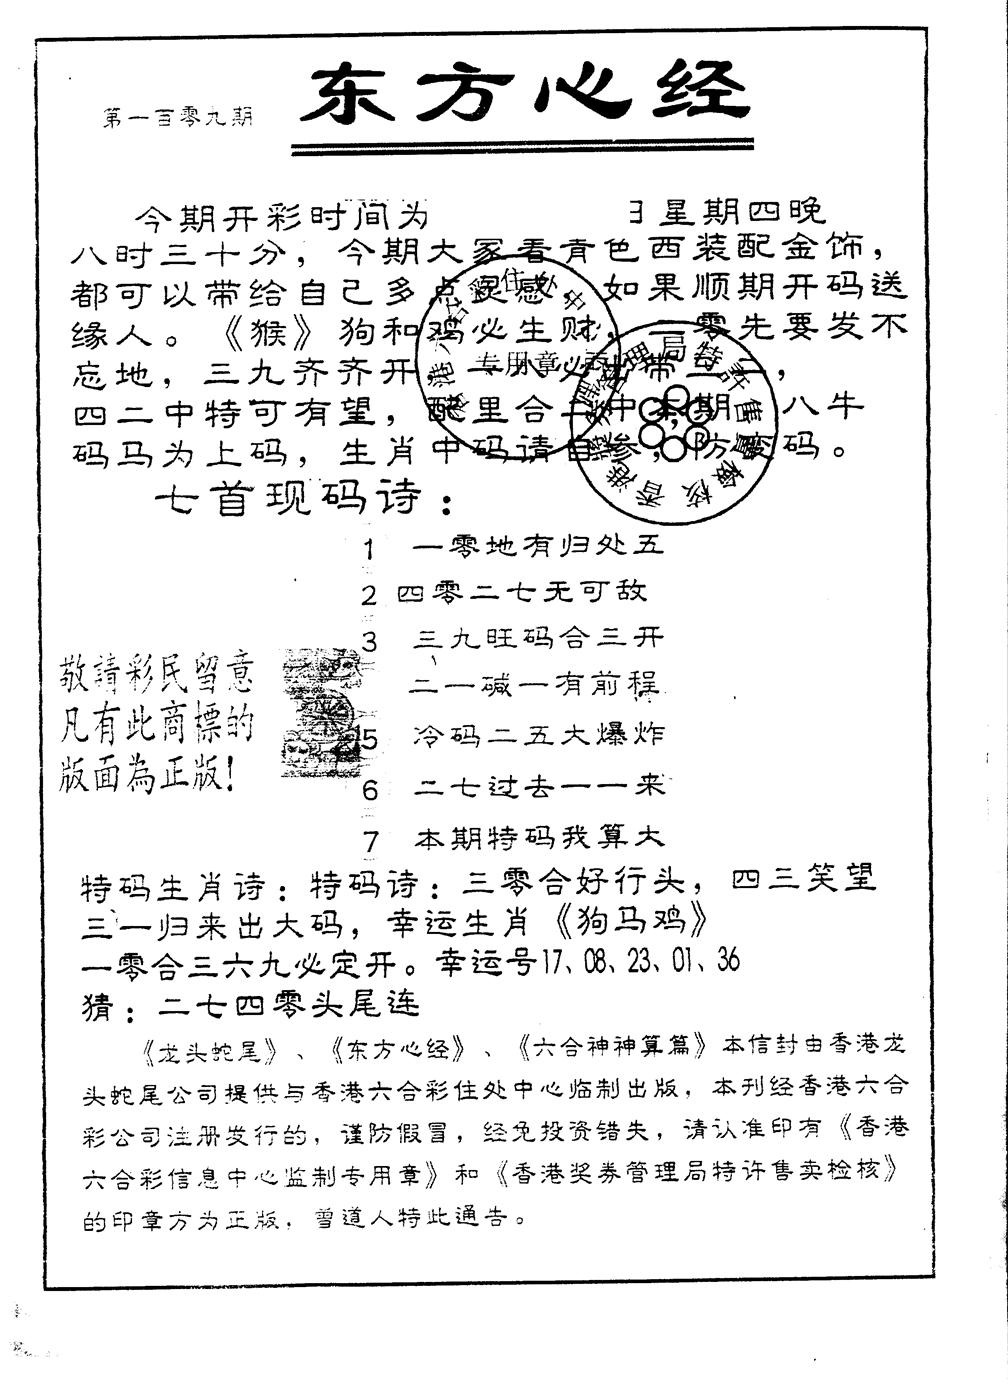 东方心经
第一百零九期
今期开彩时间为 星期四晚
八时三十分，今期大家看青色西装配金饰，
都可以带给自己多点灵感，如果顺期开码送
缘人。《猴》狗和鸡必生财，一零先要发不
忘地，三九齐齐开， 必出带二二，
四二中特可有望，配里合 中本期 八牛
码马为上码，生肖中码请自参，防 码。
七首现码诗：
1 一零地有归处五
2 四零二七无可敌
3 三九旺码合三开
二一碱一有前程
5 冷码二五大爆炸
6 二七过去一一来
7 本期特码我算大
敬請彩民留意
凡有此商標的
版面為正版！
特码生肖诗：特码诗：三零合好行头，四三笑望
三一归来出大码，幸运生肖《狗马鸡》
一零合三六九必定开。幸运号17、08、23、01、36
猜：二七四零头尾连
《龙头蛇尾》、《东方心经》、《六合神神算篇》本信封由香港龙
头蛇尾公司提供与香港六合彩住处中心临制出版，本刊经香港六合
彩公司注册发行的，谨防假冒，经免投资错失，请认准印有《香港
六合彩信息中心监制专用章》和《香港奖券管理局特许售卖检核》
的印章方为正版，曾道人特此通告。
专用章
香港 管理局特許售賣檢核